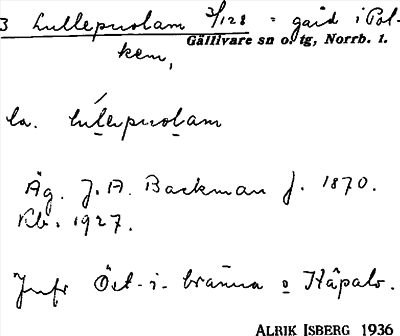 3 Lullepuolam 3/128 = gård i Pol-
Gällivare sn o. tg, Norrb. l.
kem,
la. lulepuolam
Äg. J. A. Backman f. 1870.
Kb. 1927.
Jmfr Öst-i-bränna o Håpalo.
ALRIK ISBERG 1936